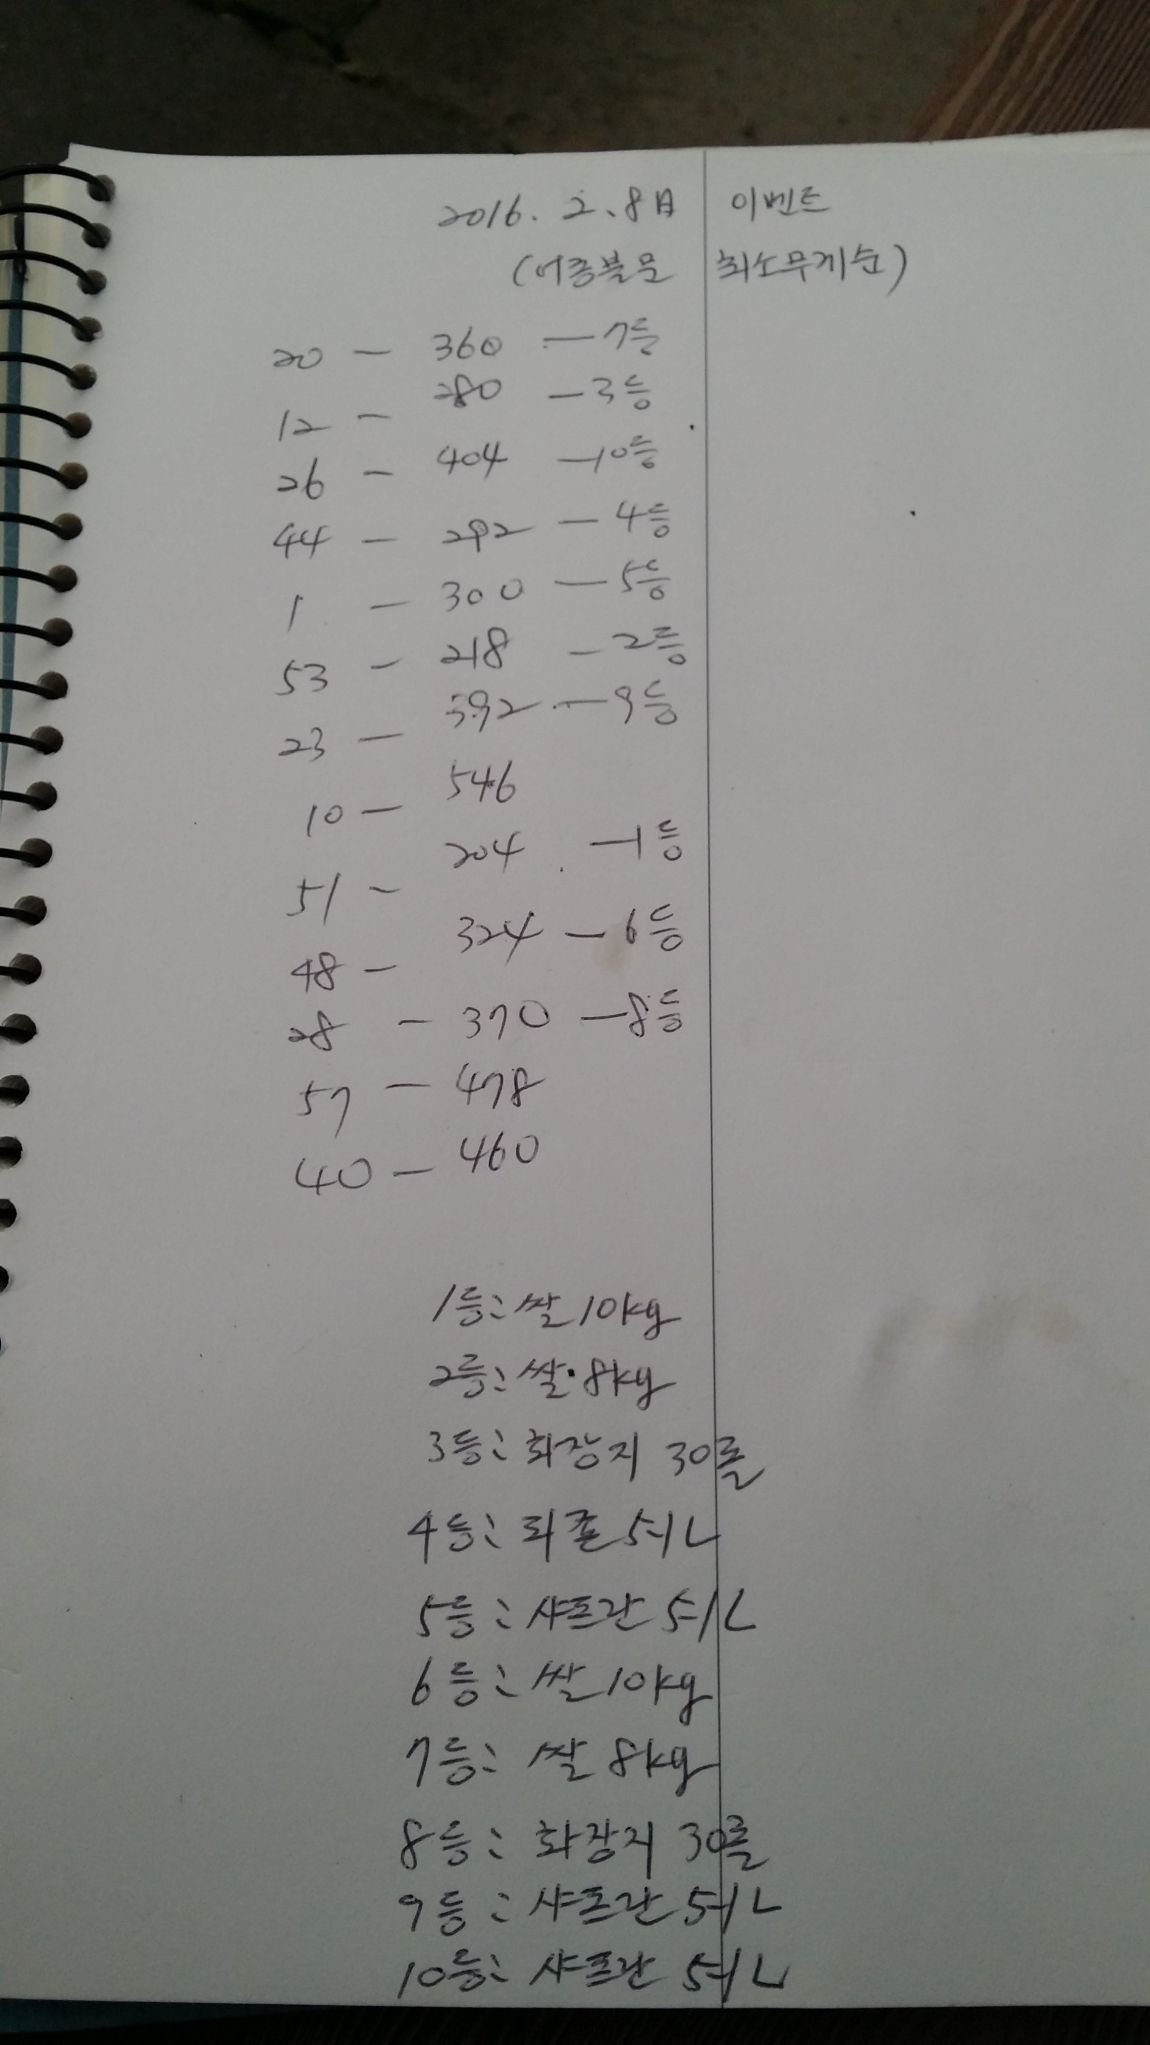 2016. 2. 8日 이벤트
(어종불문 최소무게순)
20 - 360 - 7등
12 - 280 - 3등
26 - 404 - 10등
44 - 292 - 4등
1 - 300 - 5등
53 - 218 - 2등
23 - 392 - 9등
10 - 546
51 - 204 - 1등
48 - 324 - 6등
28 - 370 - 8등
57 - 478
40 - 460
1등: 쌀 10kg
2등: 쌀 8kg
3등: 화장지 30롤
4등: 퍼죤
5등: 샤프란
6등: 쌀 10kg
7등: 쌀 8kg
8등: 화장지 30롤
9등: 샤프란
10등: 샤프란